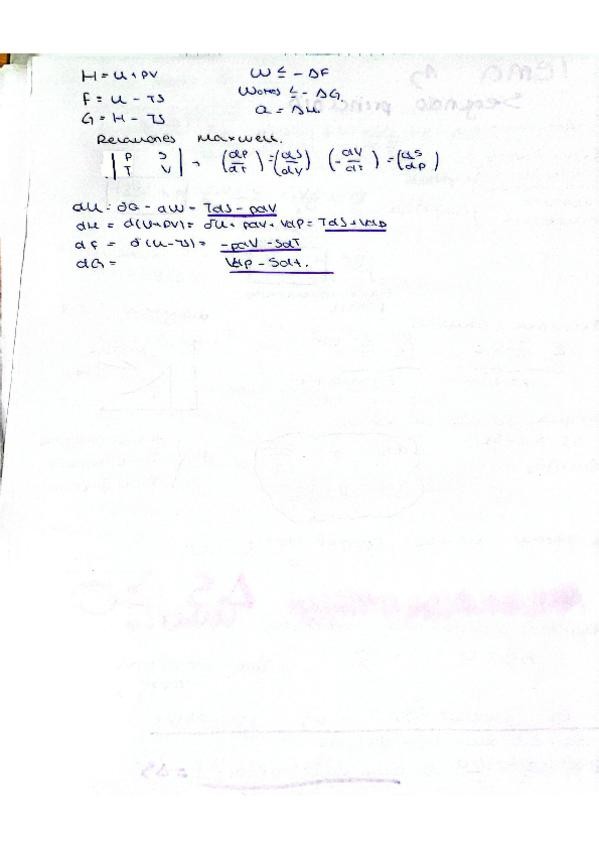 H = U + PV W ≤ - ΔF
F = U - TS Wotros ≤ - ΔG
G = H - TS Q = ΔH.
Relaciones Maxwell.
| P S | → (dP/dT) = (dS/dV) (-dV/dT) = (dS/dP)
| T V |
dU = δQ - dW = TdS - pdV
dH = d(U+PV) = dU + pdV + VdP = TdS + Vdp
dF = d(U-TS) = -pdV - SdT
dG = Vdp - Sdt.